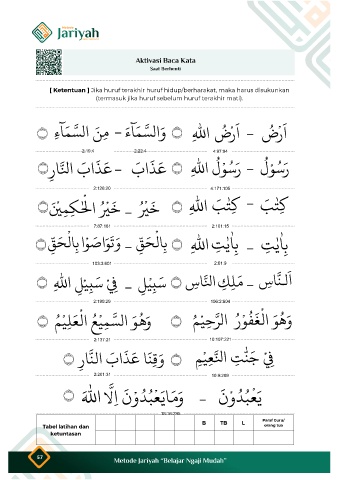 Metode
Jariyah
Aktivasi Baca Kata
Saat Berhenti
[ Ketentuan ] Jika huruf terakhir huruf hidup/berharakat, maka harus disukunkan
(termasuk jika huruf sebelum huruf terakhir mati).
اَرْضُ – اَرْضُ اللّٰهِ ۝ وَالسَّمَآءَ – مِنَ السَّمَآءِ ۝
4:97.94 2:22.4 2:19.4
رَسُوْلُ – رَسُوْلُ اللّٰهِ ۝ عَذَابَ – عَذَابَ النَّارِ ۝
4:171.105
كِتٰبَ – كِتٰبَ اللّٰهِ ۝ خَيْرُ – خَيْرُ الْحٰكِمِيْنَ ۝
2:101.15 7:87.161
بِاٰيٰتِ – بِاٰيٰتِ اللّٰهِ ۝ بِالْحَقِّ – وَتَوَاصَوْا بِالْحَقِّ ۝
2:61.9
اَلنَّاسِ – مَلِكِ النَّاسِ ۝ سَبِيْلِ – فِيْ سَبِيْلِ اللّٰهِ ۝
وَهُوَ الْغَفُوْرُ الرَّحِيْمُ ۝ وَهُوَ السَّمِيْعُ الْعَلِيْمُ ۝
10:107.221 2:137.21
فِيْ جَنّٰتِ النَّعِيْمِ ۝ وَقِنَا عَذَابَ النَّارِ ۝
10:9.209 2:201.31
يَعْبُدُوْنَ – وَمَايَعْبُدُوْنَ اِلَّا اللّٰهَ ۝
Tabel latihan dan
ketuntasan
B TB L
Paraf Guru/
orang tua
57
Metode Jariyah "Belajar Ngaji Mudah"